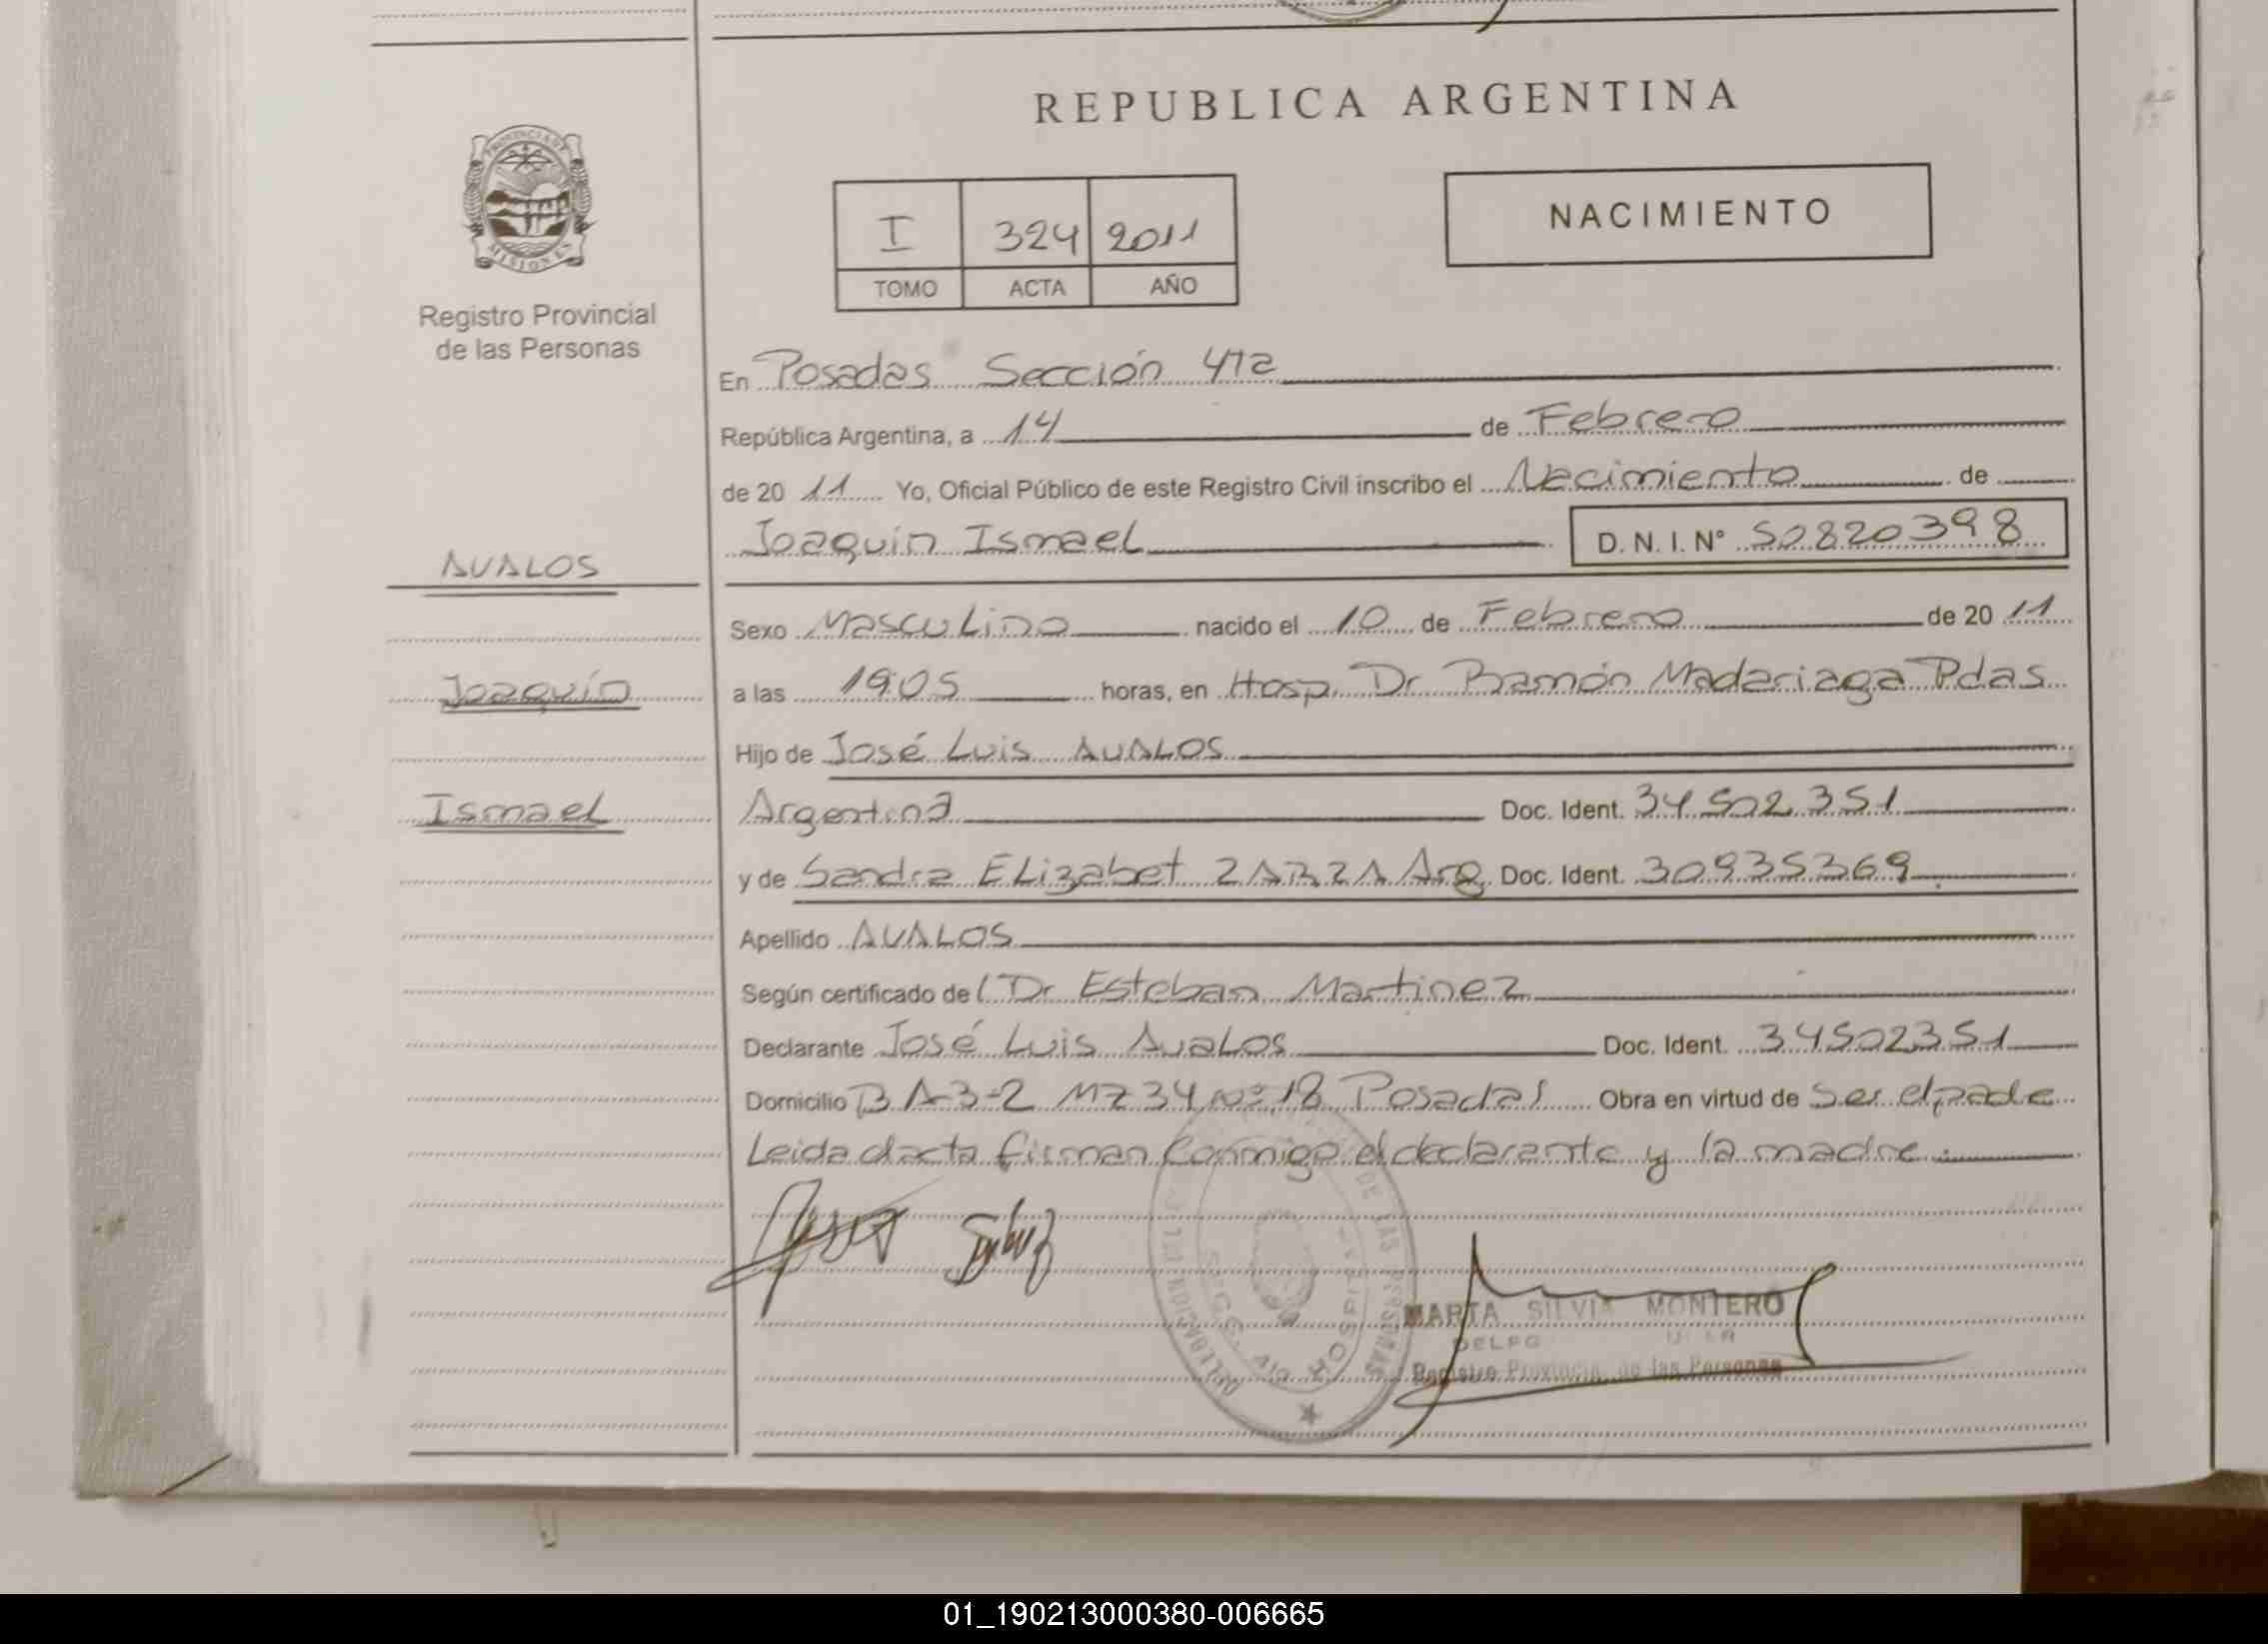 REPUBLICA ARGENTINA
PROVINCIA DE
MISIONES
Registro Provincial
de las Personas
I 324 2011
TOMO ACTA AÑO
NACIMIENTO
En Posadas Sección 4ta
República Argentina, a 14 de Febrero
de 20 11 Yo, Oficial Público de este Registro Civil inscribo el Nacimiento de
Joaquin Ismael D.N.I. Nº 50820398
AVALOS
Joaquín
Ismael
Sexo Masculino nacido el 10 de Febrero de 20 11
a las 19:05 horas, en Hosp. Dr Ramón Madariaga Pdas
Hijo de José Luis AVALOS
Argentina Doc. Ident. 34502351
y de Sandra Elizabet ZARZA Arg. Doc. Ident. 30935369
Apellido AVALOS
Según certificado del Dr Esteban Martinez
Declarante José Luis Avalos Doc. Ident. 34502351
Domicilio B A-3-2 MZ 34 Nº 18 Posadas Obra en virtud de Ser el padre
Leida el acta firman conmigo el declarante y la madre.
DE LAS PERSONAS
MARTA SILVIA MONTERO
Registro Provincial de las Personas
01_190213000380-006665